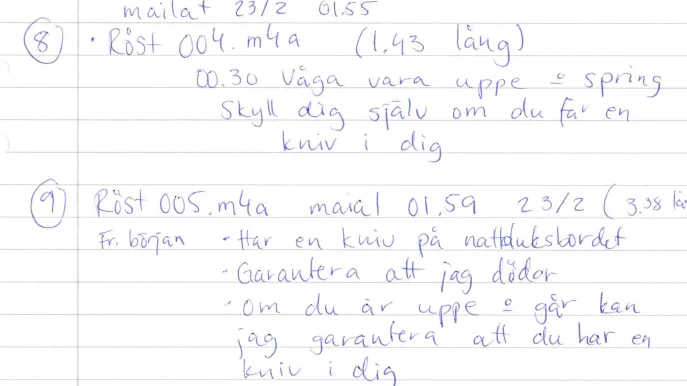 mailat 23/2 01.55
8 · Röst 004.m4a (1.43 lång)
00.30 Våga vara uppe o spring
Skyll dig själv om du får en
kniv i dig
9 Röst 005.m4a maial 01.59 23/2 (3.38 lå
Fr. början · Har en kniv på nattduksbordet
· Garantera att jag dödar
· Om du är uppe o går kan
jag garantera att du har en
kniv i dig